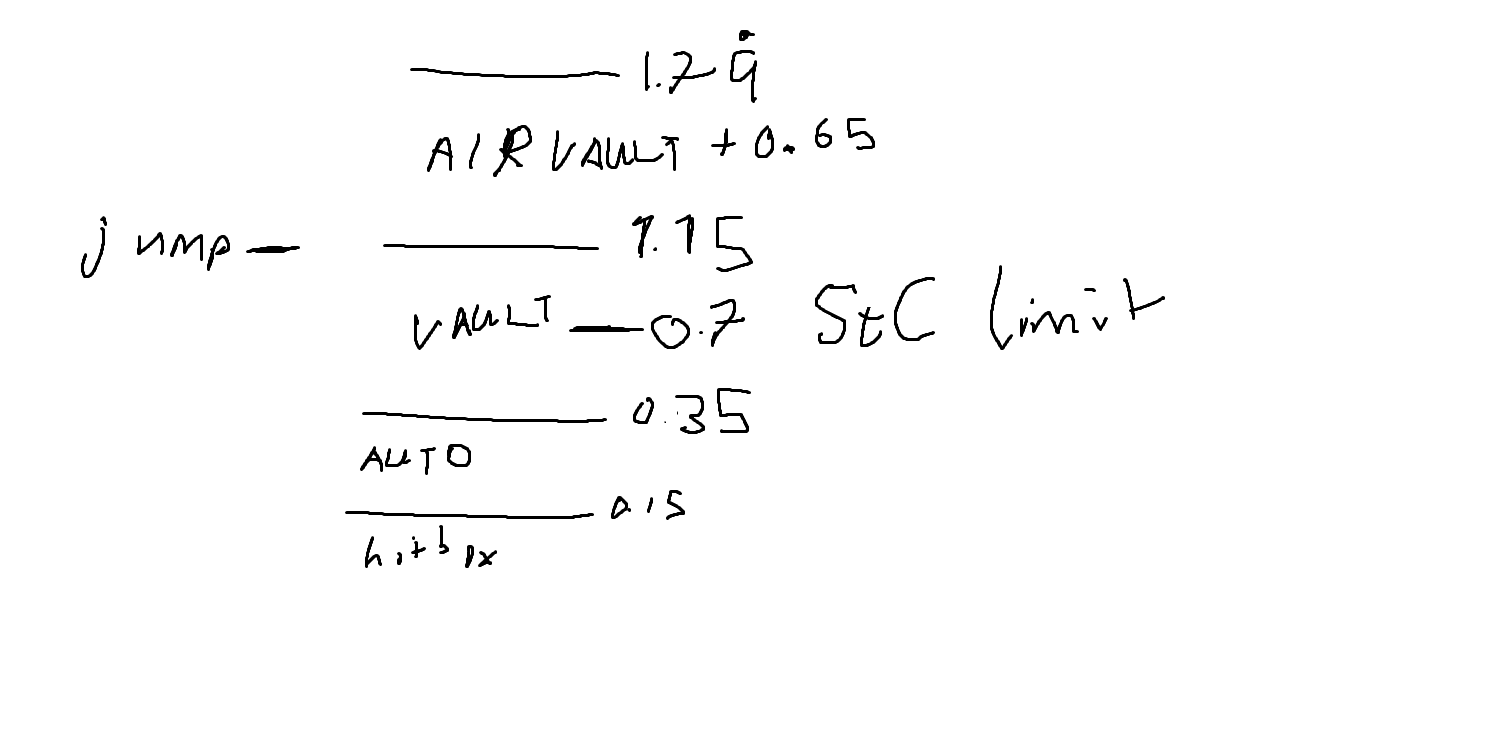 1.29
AIR VAULT + 0.65
jump — 1.15
VAULT — 0.7 StC limit
0.35
AUTO
0.15
hitbox